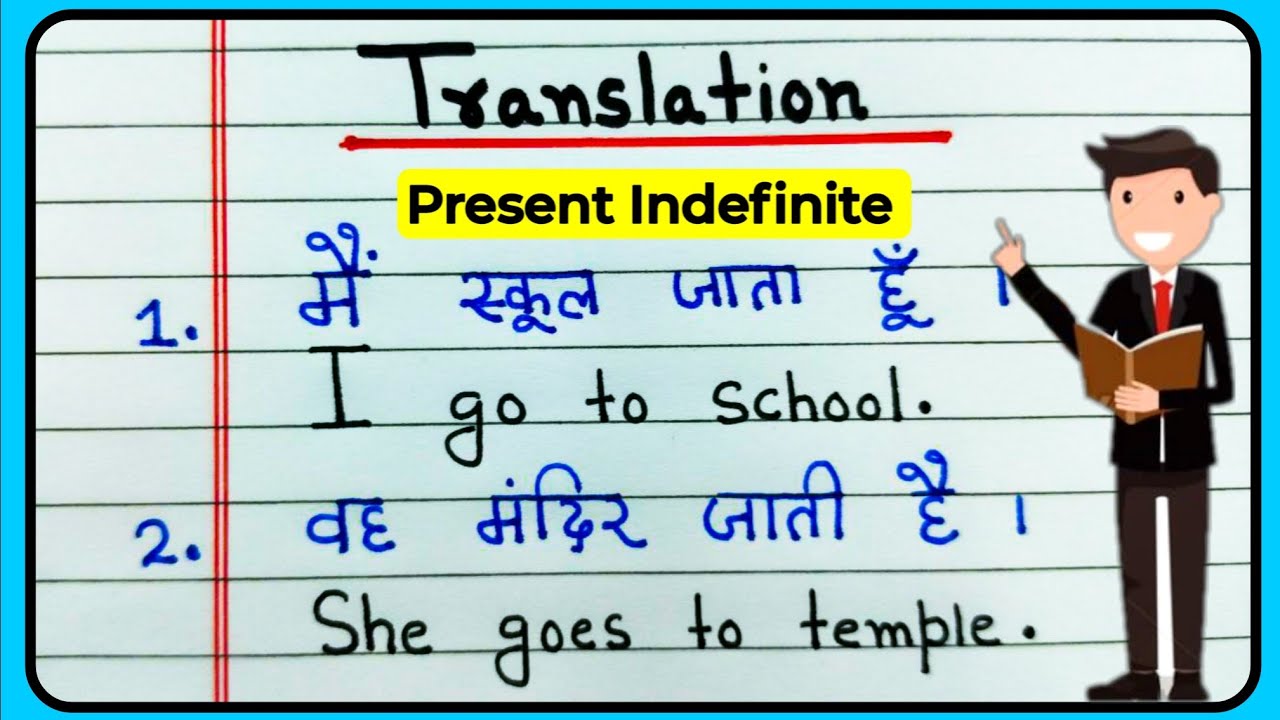 Translation
Present Indefinite
1. मैं स्कूल जाता हूँ ।
I go to school.
2. वह मंदिर जाती है ।
She goes to temple.